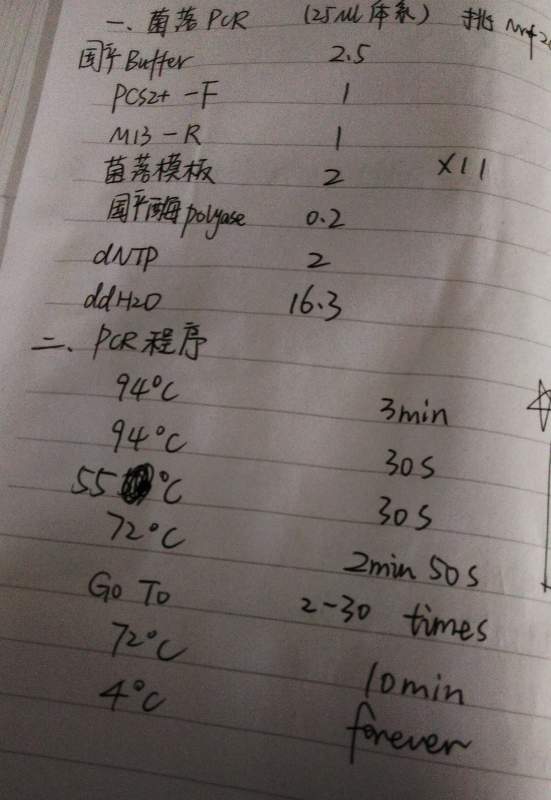 一、菌落PCR (25μl体系) 挑 Nrf2
国平Buffer 2.5
PCS2+ -F 1
M13-R 1
菌落模板 2 ×11
国平酶polyase 0.2
dNTP 2
ddH2O 16.3
二、PCR程序
94°C 3min
94°C 30s
55°C 30s
72°C 2min 50s
Go To 2-30 times
72°C 10min
4°C forever